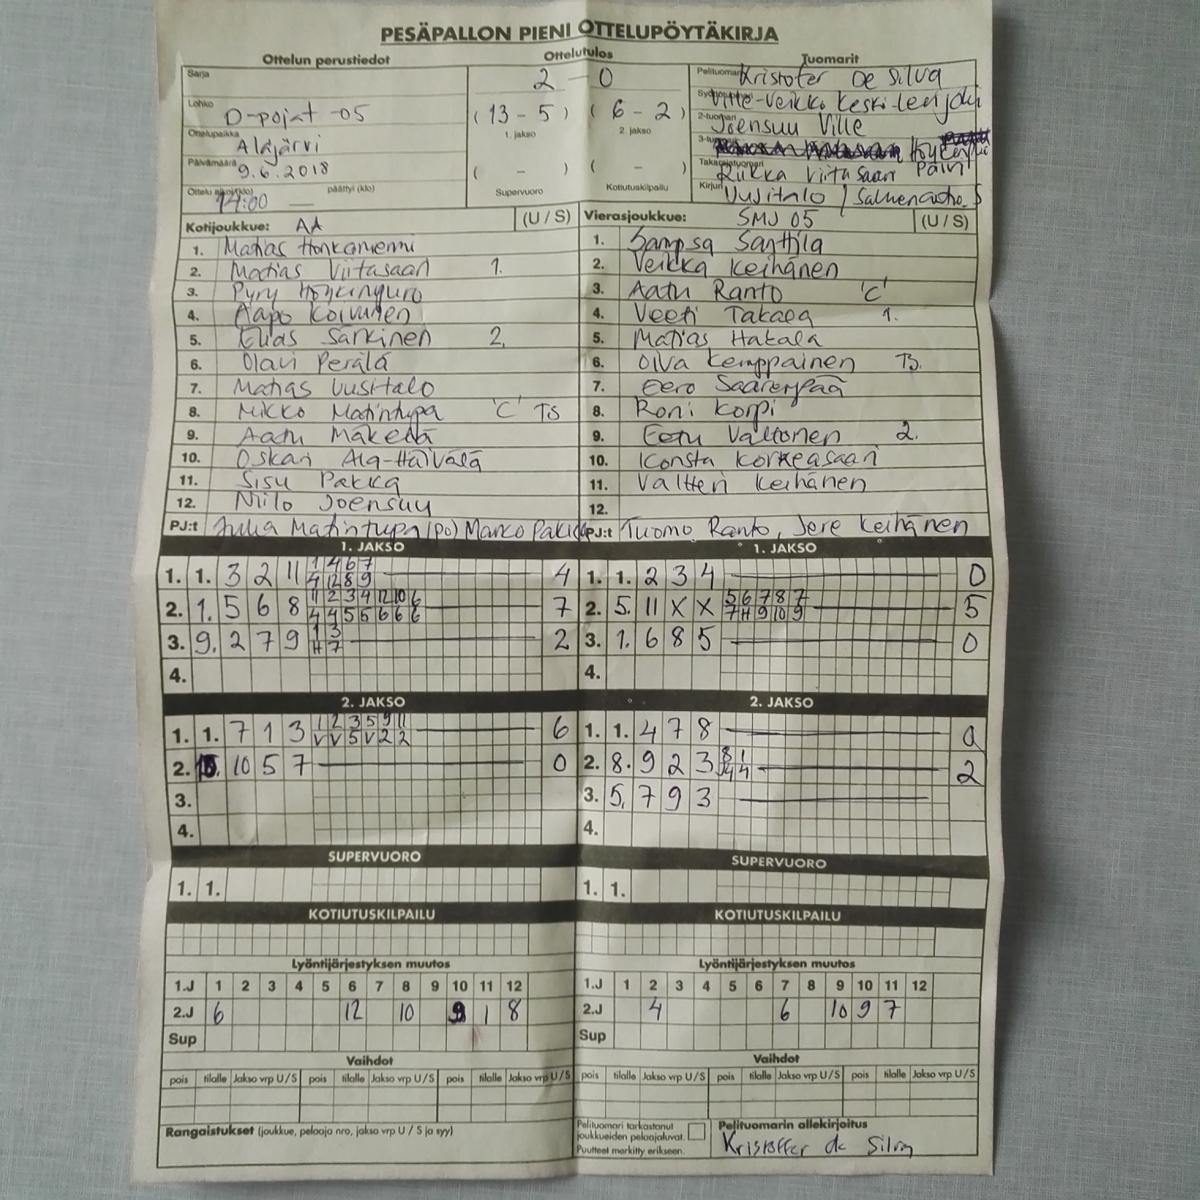 PESÄPALLON PIENI OTTELUPÖYTÄKIRJA
Ottelun perustiedot Ottelutulos Tuomarit
Sarja 2 - 0 Pelituomari Kristofer De Silva
Lohko D-pojat -05 (13 - 5) (6 - 2) Ville-Veikko Keski-
1. jakso 2. jakso 2-tuomari Joensuu Ville
Ottelupaikka Alajärvi 3-tuomari
Päivämäärä 9.6.2018 ( - ) ( - ) Takarajatuomari Riikka Viitasaari Päivi
Ottelu alkoi (klo) 14:00 päättyi (klo) — Supervuoro Kotiutuskilpailu Kirjuri Uusitalo /
Kotijoukkue: AA (U / S) Vierasjoukkue: SMJ 05 (U / S)
1. Matias Honkaniemi 1. Sampsa Santtila
2. Matias Viitasaari 1. 2. Veikka Keihänen
3. Pyry 3. Aatu Ranto 'C'
4. Aapo Koivunen 4. Veeti Takala 1.
5. Elias Särkinen 2. 5. Matias Hakala
6. Olavi Perälä 6. Oiva Kemppainen T3.
7. Matias Uusitalo 7. Eero Saarenpää
8. Mikko Matintupa 'C' TS 8. Roni Korpi
9. Aatu Mäkelä 9. Eetu Valtonen 2.
10. Oskari Ala-Hälvälä 10. Konsta Korkeasaari
11. Sisu Pakka 11. Valtteri Keihänen
12. Niilo Joensuu 12.
PJ:t Juha Matintupa (po) Marko PJ:t Tuomo Ranto, Jere Keihänen
1. JAKSO 1. JAKSO
1 4 6 7
1. 1. 3 2 11 4 12 8 9 4 1. 1. 2 3 4 0
11 2 3 4 12 10 6 5 6 7 8 7
2. 1. 5 6 8 4 4 5 5 6 6 6 7 2. 5. 11 X X 7 H 9 10 9 5
1 3
3. 9. 2 7 9 H 7 2 3. 1. 6 8 5 0
4. 4.
2. JAKSO 2. JAKSO
1 2 3 5 9 11
1. 1. 7 1 3 V V 5 V 2 2 6 1. 1. 4 7 8 0
8 1
2. 10 5 7 0 2. 8. 9 2 3 4 2
3. 3. 5. 7 9 3
4. 4.
SUPERVUORO SUPERVUORO
1. 1. 1. 1.
KOTIUTUSKILPAILU KOTIUTUSKILPAILU
Lyöntijärjestyksen muutos Lyöntijärjestyksen muutos
1.J 1 2 3 4 5 6 7 8 9 10 11 12 1.J 1 2 3 4 5 6 7 8 9 10 11 12
2.J 6 12 10 9 1 8 2.J 4 6 10 9 7
Sup Sup
Vaihdot Vaihdot
pois tilalle Jakso vrp U / S pois tilalle Jakso vrp U / S pois tilalle Jakso vrp U / S pois tilalle Jakso vrp U / S pois tilalle Jakso vrp U / S pois tilalle Jakso vrp U / S
Rangaistukset (joukkue, pelaaja nro, jakso vrp U / S ja syy) Pelituomari tarkastanut Pelituomarin allekirjoitus
joukkueiden pelaajaluvat.
Puutteet merkitty erikseen. Kristoffer de Silva